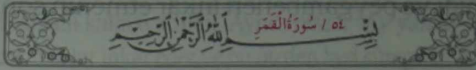 ٥٤ / سُورَةُ الْقَمَرِ
بِسْمِ اللَّهِ الرَّحْمَٰنِ الرَّحِيمِ